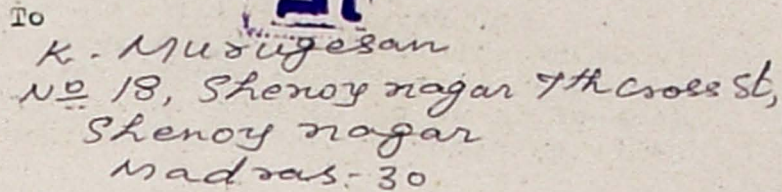 To
K. Murugesan
No 18, Shenoy nagar 7th cross St,
Shenoy nagar
Madras-30